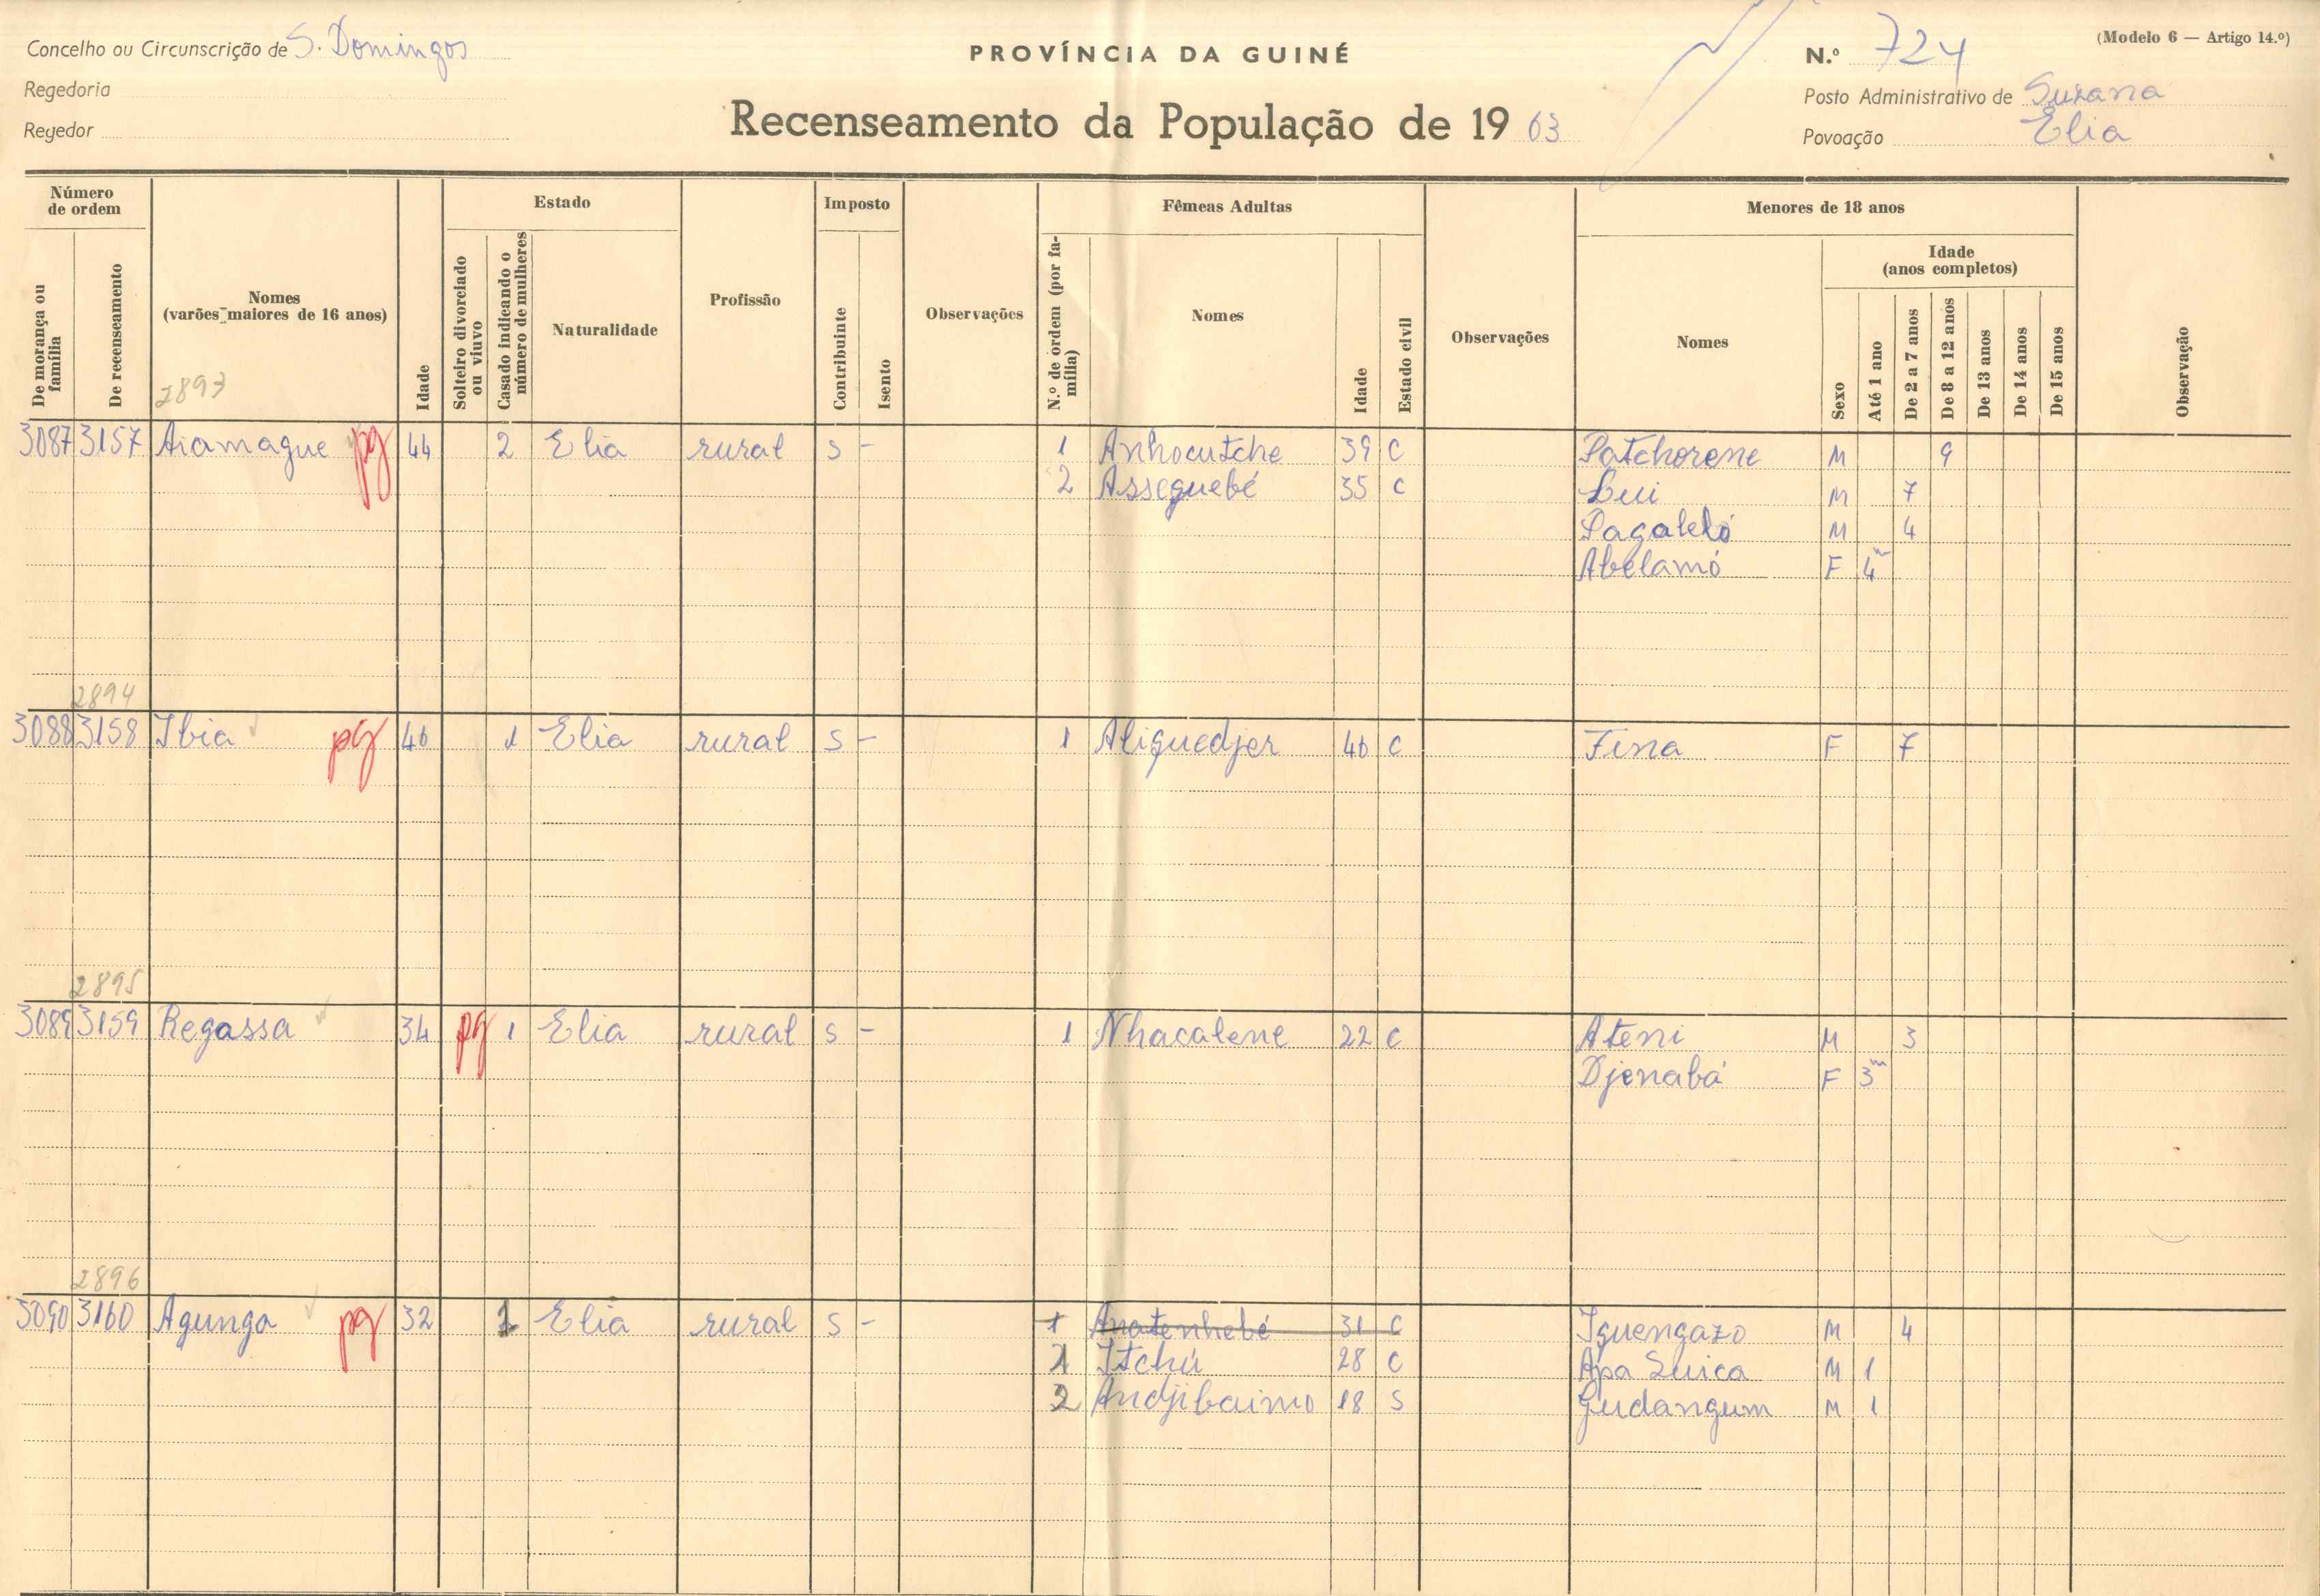 Concelho ou Circunscrição de S. Domingos
PROVÍNCIA DA GUINÉ
N.º 724
(Modelo 6 — Artigo 14.º)
Regedoria
Posto Administrativo de Suzana
Regedor
Recenseamento da População de 1963
Povoação Elia
Número de ordem
Estado
Imposto
Fêmeas Adultas
Menores de 18 anos
De morança ou família
De recenseamento
Nomes (varões maiores de 16 anos)
Idade
Solteiro divorciado ou viuvo
Casado indicando o número de mulheres
Naturalidade
Profissão
Contribuinte
Isento
Observações
N.º de ordem (por família)
Nomes
Idade
Estado civil
Observações
Nomes
Sexo
Idade (anos completos)
Até 1 ano
De 2 a 7 anos
De 8 a 12 anos
De 13 anos
De 14 anos
De 15 anos
Observação
2893
3087 3157 Aiamague pg 44 2 Elia rural s - 1 Anhocutche 39 C Patchorene M 9
2 Asseguebé 35 C Lui M 7
Pagaleló M 4
Abelamó F 4m
2894
3088 3158 Ibia pg 46 1 Elia rural s - 1 Aliquedjer 40 C Fina F 7
2895
3089 3159 Regassa 34 pg 1 Elia rural s - 1 Nhacalene 22 C Ateni M 3
Djenabá F 3m
2896
3090 3160 Agunga pg 32 Elia rural s - 1 Anatenhebé 31 C Iguengazo M 4
1 Itchú 28 C Apa Suica M 1
2 Andjibaimo 18 S Gudangum M 1